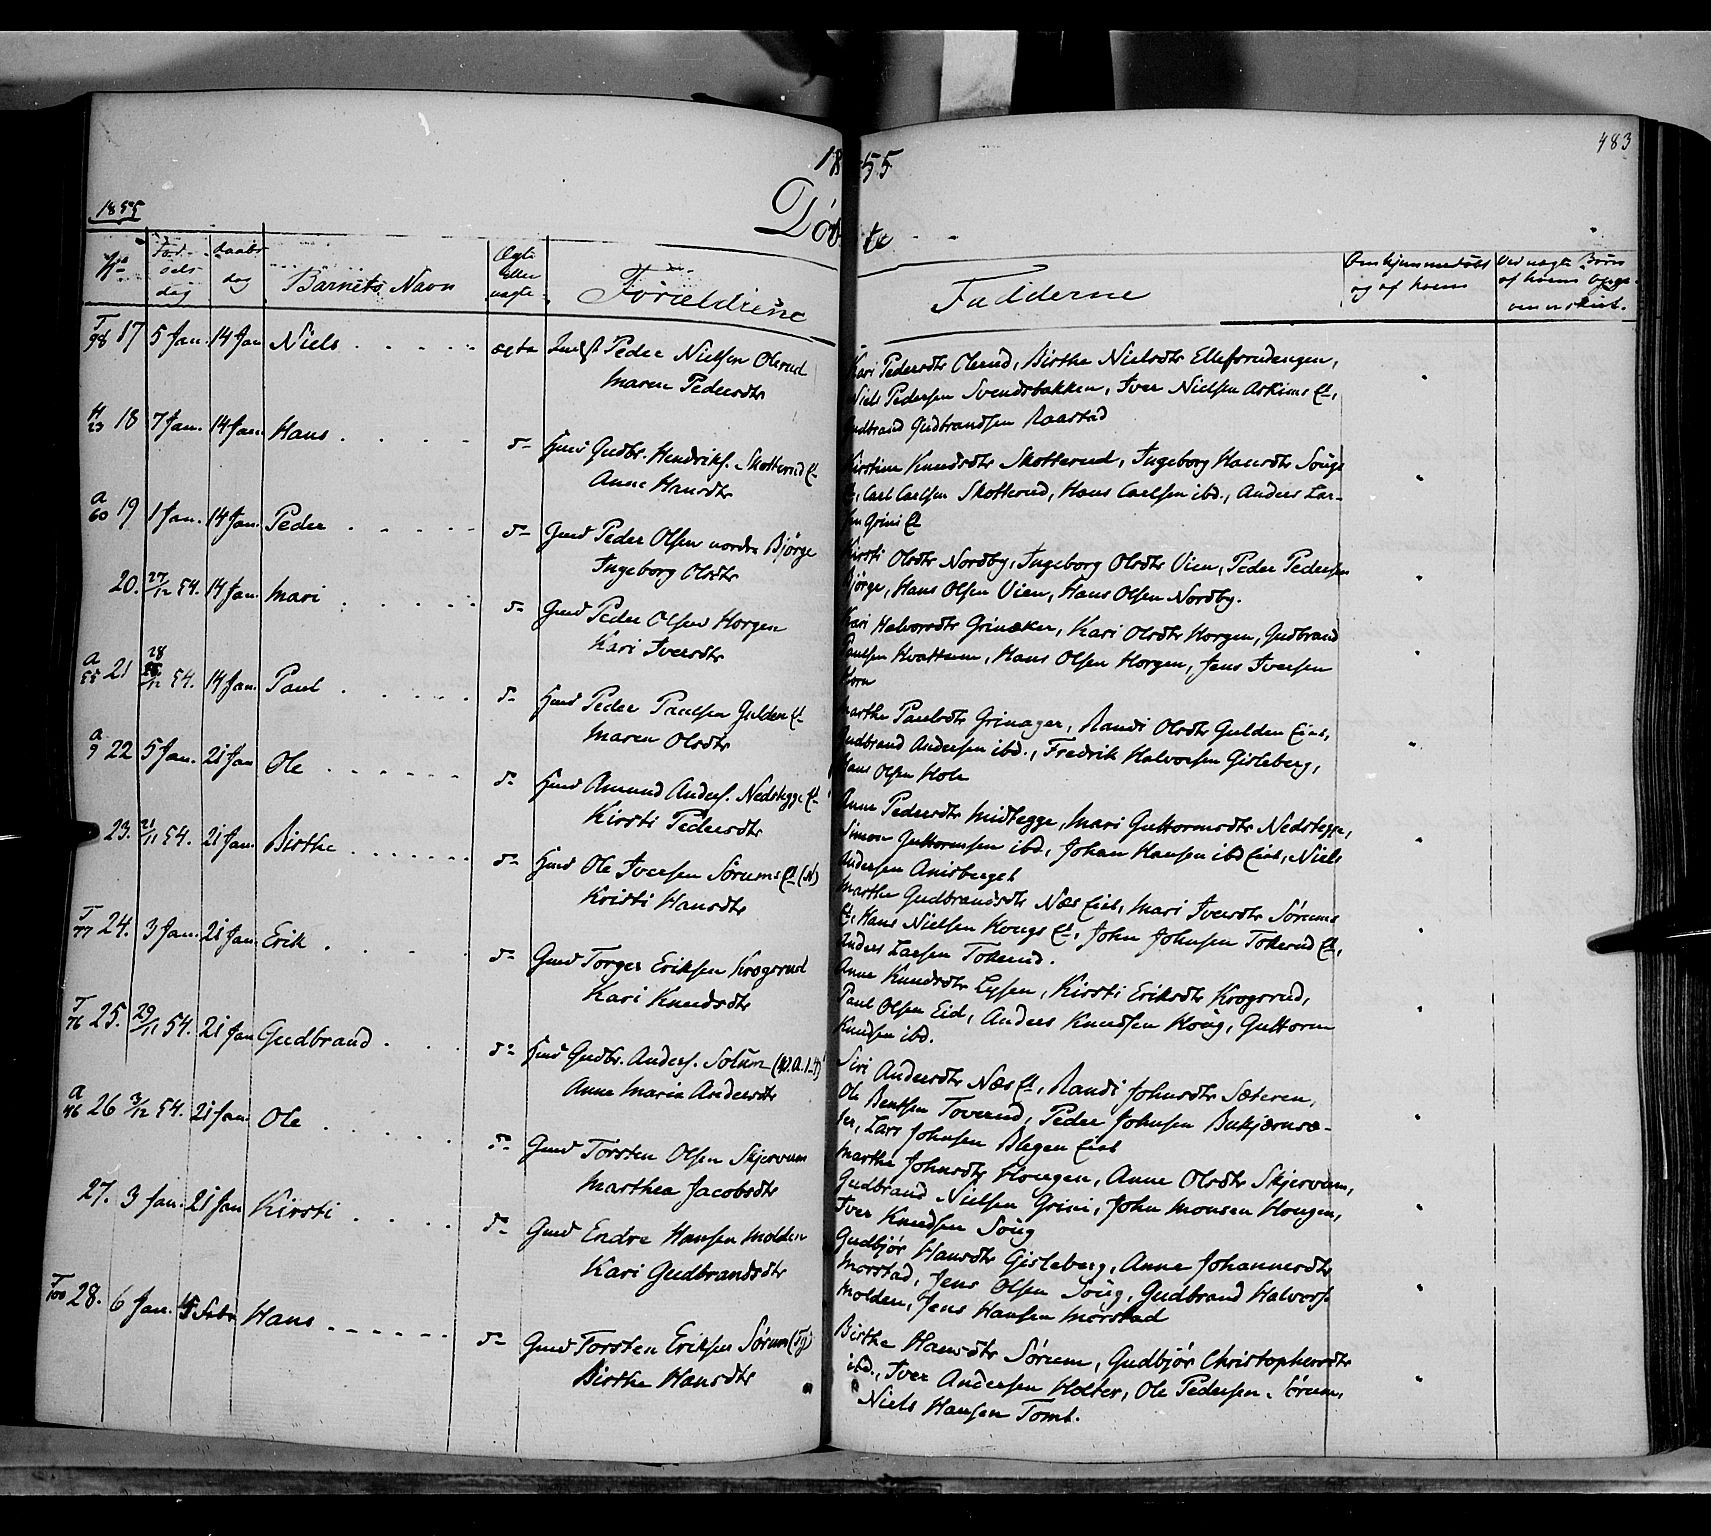 483
18 55
1855
Døbte
No Fødselsdag Daabsdag Barnets Navn Ægte eller uægte Forældrene Fadderne Om hjemmedøbt og af hvem Ved uægte Børn af hvem
T 98 17 5 Jan. 14 Jan Niels ægte Peder Nielsen Olerud
Maren Pedersdtr
Kari Pedersdtr Olerud, Birthe Nielsdtr Ellefsrudengen,
Niels Pedersen Svendsbakken, Iver Nielsen Askims Et,
Gudbrand Gudbrandsen Raastad
H 23 18 7 Jan. 14 Jan. Hans d- Huusm Gudbr. Hendriks. Skotterud Et
Anne Hansdtr
Kirstine Knudsdtr Skotterud, Ingeborg Hansdtr Soug
Et, Carl Carlsen Skotterud, Hans Carlsen ibd., Anders Lar-
sen Grini Et
A 60 19 1 Jan. 14 Jan. Peder d- Gmd Peder Olsen nordre Bjørge
Ingeborg Olsdtr
Kirsti Olsdtr Nordby, Ingeborg Olsdtr Vien, Peder Pedersen
Bjørge, Hans Olsen Vien, Hans Olsen Nordby.
20. 27/12 54. 14 Jan. Mari d- Gmd Peder Olsen Horgen
Kari Iversdtr
Kari Halvorsdtr Grinaker, Kari Olsdtr Horgen, Gudbrand
Paulsen Kvatterne, Hans Olsen Horgen, Jens Iversen
Horn
A 55 21 28/12 54. 14 Jan. Paul d- Huusm Peder Paulsen Gulden Et
Maren Olsdtr
Marthe Paulsdtr Grinager, Randi Olsdtr Gulden Eiet,
Gudbrand Andersen ibd., Fredrik Halvorsen Gisleberg,
Hans Olsen Hole
A 9 22 5 Jan. 21 Jan Ole d- Huusm Amund Anders. Nedstegge Et
Kirsti Pedersdtr
Anne Pedersdtr Midtegge, Mari Guttormsdtr Nedstegge,
Simen Guttormsen ibd, Johan Hansen ibd Eiet, Niels
Andersen Amisberget
23. 21/11 54. 21 Jan. Birthe d- Huusm Ole Iversen Sørums Et (N)
Kristi Hansdtr
Marthe Gudbrandsdtr Næs Eiet, Mari Iversdtr Sørums
Et, Hans Nielsen Hougs Et, John Johnsen Tokerud Et,
Anders Larsen Tokerud.
T 77 24. 3 Jan. 21 Jan. Erik d- Gmd Torger Eriksen Krogsrud
Kari Knudsdtr
Anne Knudsdtr Lysen, Kirsti Eriksdtr Krogsrud,
Paul Olsen Eid, Anders Knudsen Houg, Guttorm
Knudsen ibd.
T 76 25. 29/11 54. 21 Jan Gudbrand d- Huusm Gudbr. Anders. Solum
Anne Maria Andersdtr
Siri Andersdtr Næs Et, Randi Johnsdtr Sæteren,
Ole Bentsen Toverud, Peder Johnsen Bukjernsæ-
ter, Lars Johnsen Blegen Eiet
A 46 26 3/12 54. 21 Jan. Ole d- Gmd Torsten Olsen Skjervum
Marthea Jacobsdtr
Marthe Johnsdtr Hougen, Anne Olsdtr Skjervum,
Gudbrand Nielsen Grini, John Monsen Hougen,
Iver Knudsen Soug
27. 3 Jan. 21 Jan Kirsti d- Gmd Endre Hansen Molden
Kari Gudbrandsdtr
Gudbjør Hansdtr Gisleberg, Anne Johannesdtr
Morstad, Jens Olsen Soug, Gudbrand Halvors.
Molden, Jens Hansen Morstad
T 100 28. 6 Jan. Febr Hans d- Gmd Torsten Eriksen Sørum (Tj)
Birthe Hansdtr
Birthe Hansdtr Sørum, Gudbjør Christophersdtr
ibd., Iver Andersen Holter, Ole Pedersen Sørum,
Niels Hansen Tomt.